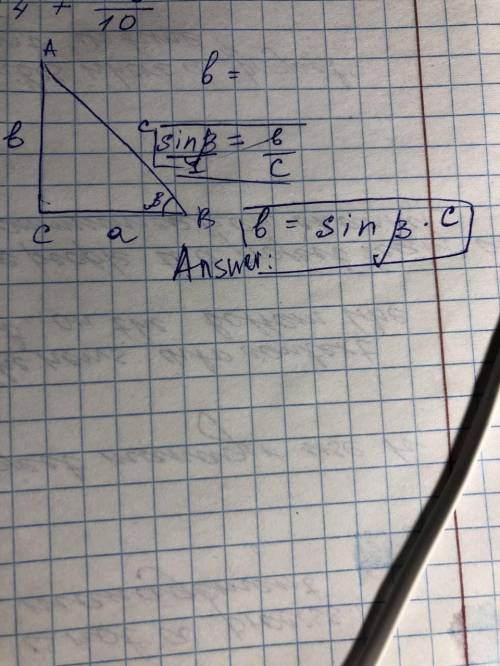 4 + 10
A
b =
b
c
sin β = b
1 c
β
B
C a
b = sin β · c
Answer: